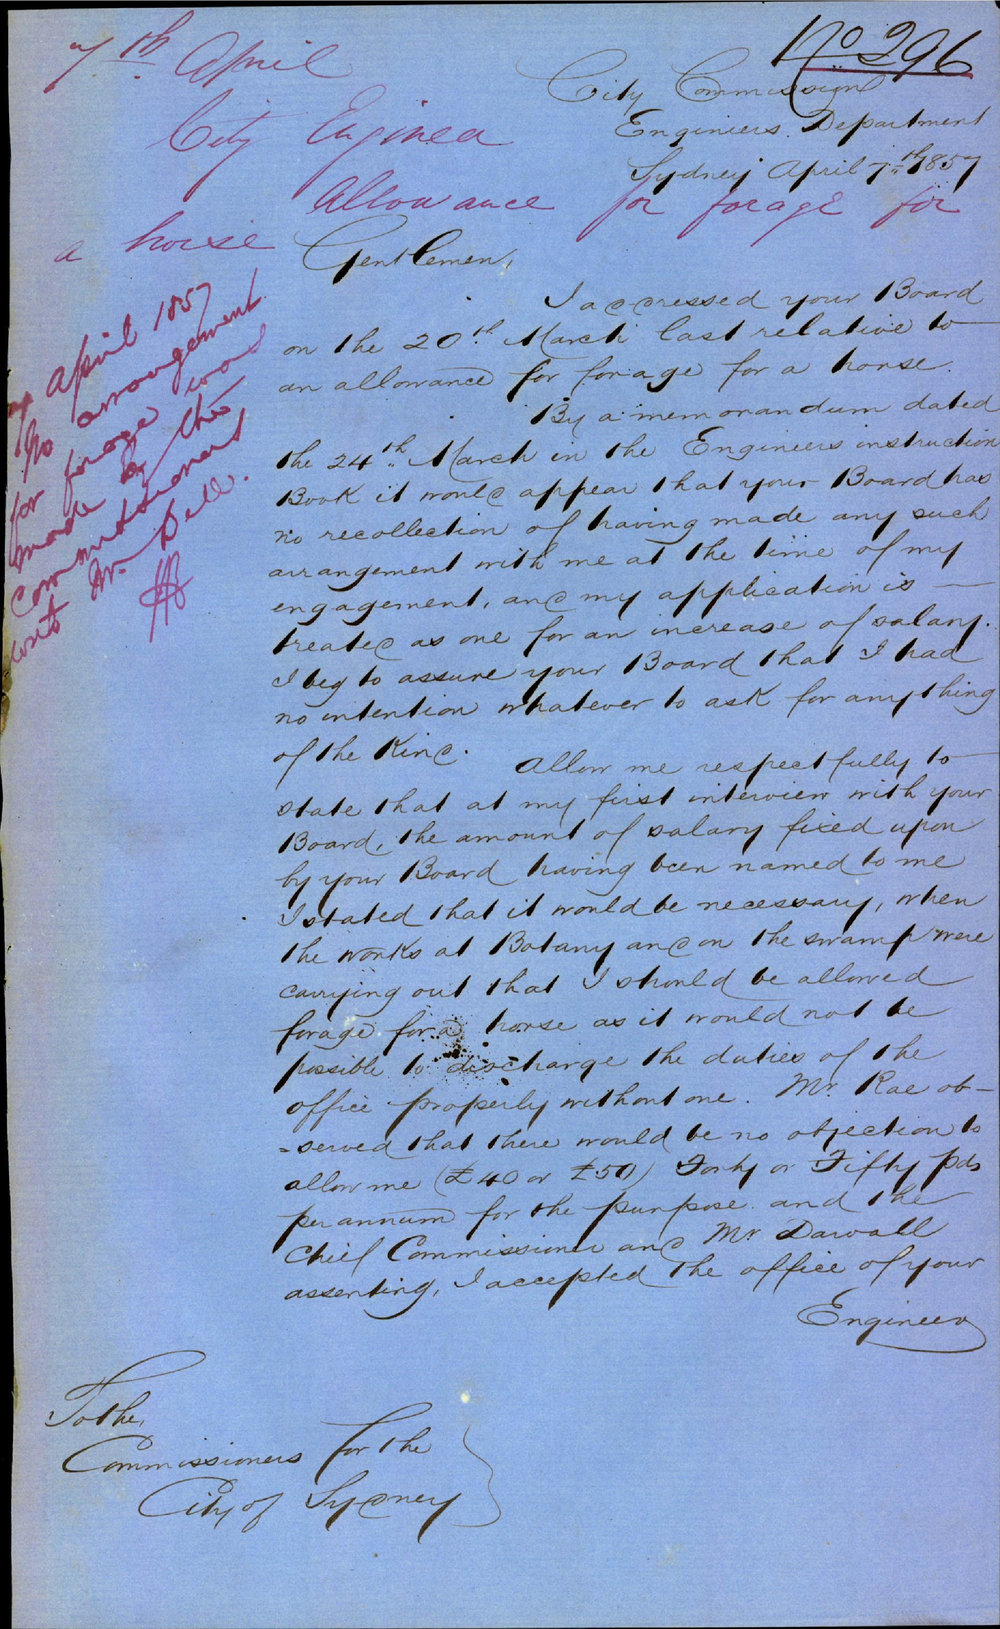 No 296
7th April
City Engineer
Allowance for forage for
a horse
City Commission
Engineers Department
Sydney April 7th 1857
Gentlemen,
I accressed your Board
on the 20th March last relative to
an allowance for forage for a horse.
By a memorandum dated
the 24th March in the Engineers instruction
Book it would appear that your Board has
no recollection of having made any such
arrangement with me at the time of my
engagement, and my application is
treated as one for an increase of salary.
I beg to assure your Board that I had
no intention whatever to ask for anything
of the kind. Allow me respectfully to
state that at my first interview with your
Board, the amount of salary fixed upon
by your Board having been named to me
I stated that it would be necessary, when
the works at Botany and on the swamp were
carrying out that I should be allowed
forage for a horse as it would not be
possible to discharge the duties of the
office properly without one. Mr. Rae ob-
-served that there would be no objection to
allow me (£40 or £50) Forty or Fifty pds
per annum for the purpose and the
Chief Commissioner and Mr Darvall
assenting, I accepted the office of your
Engineer
7 April 1857
No arrangement
for forage was
made by the
Commissioners
with Mr. Bell.
To the,
Commissioners for the
City of Sydney